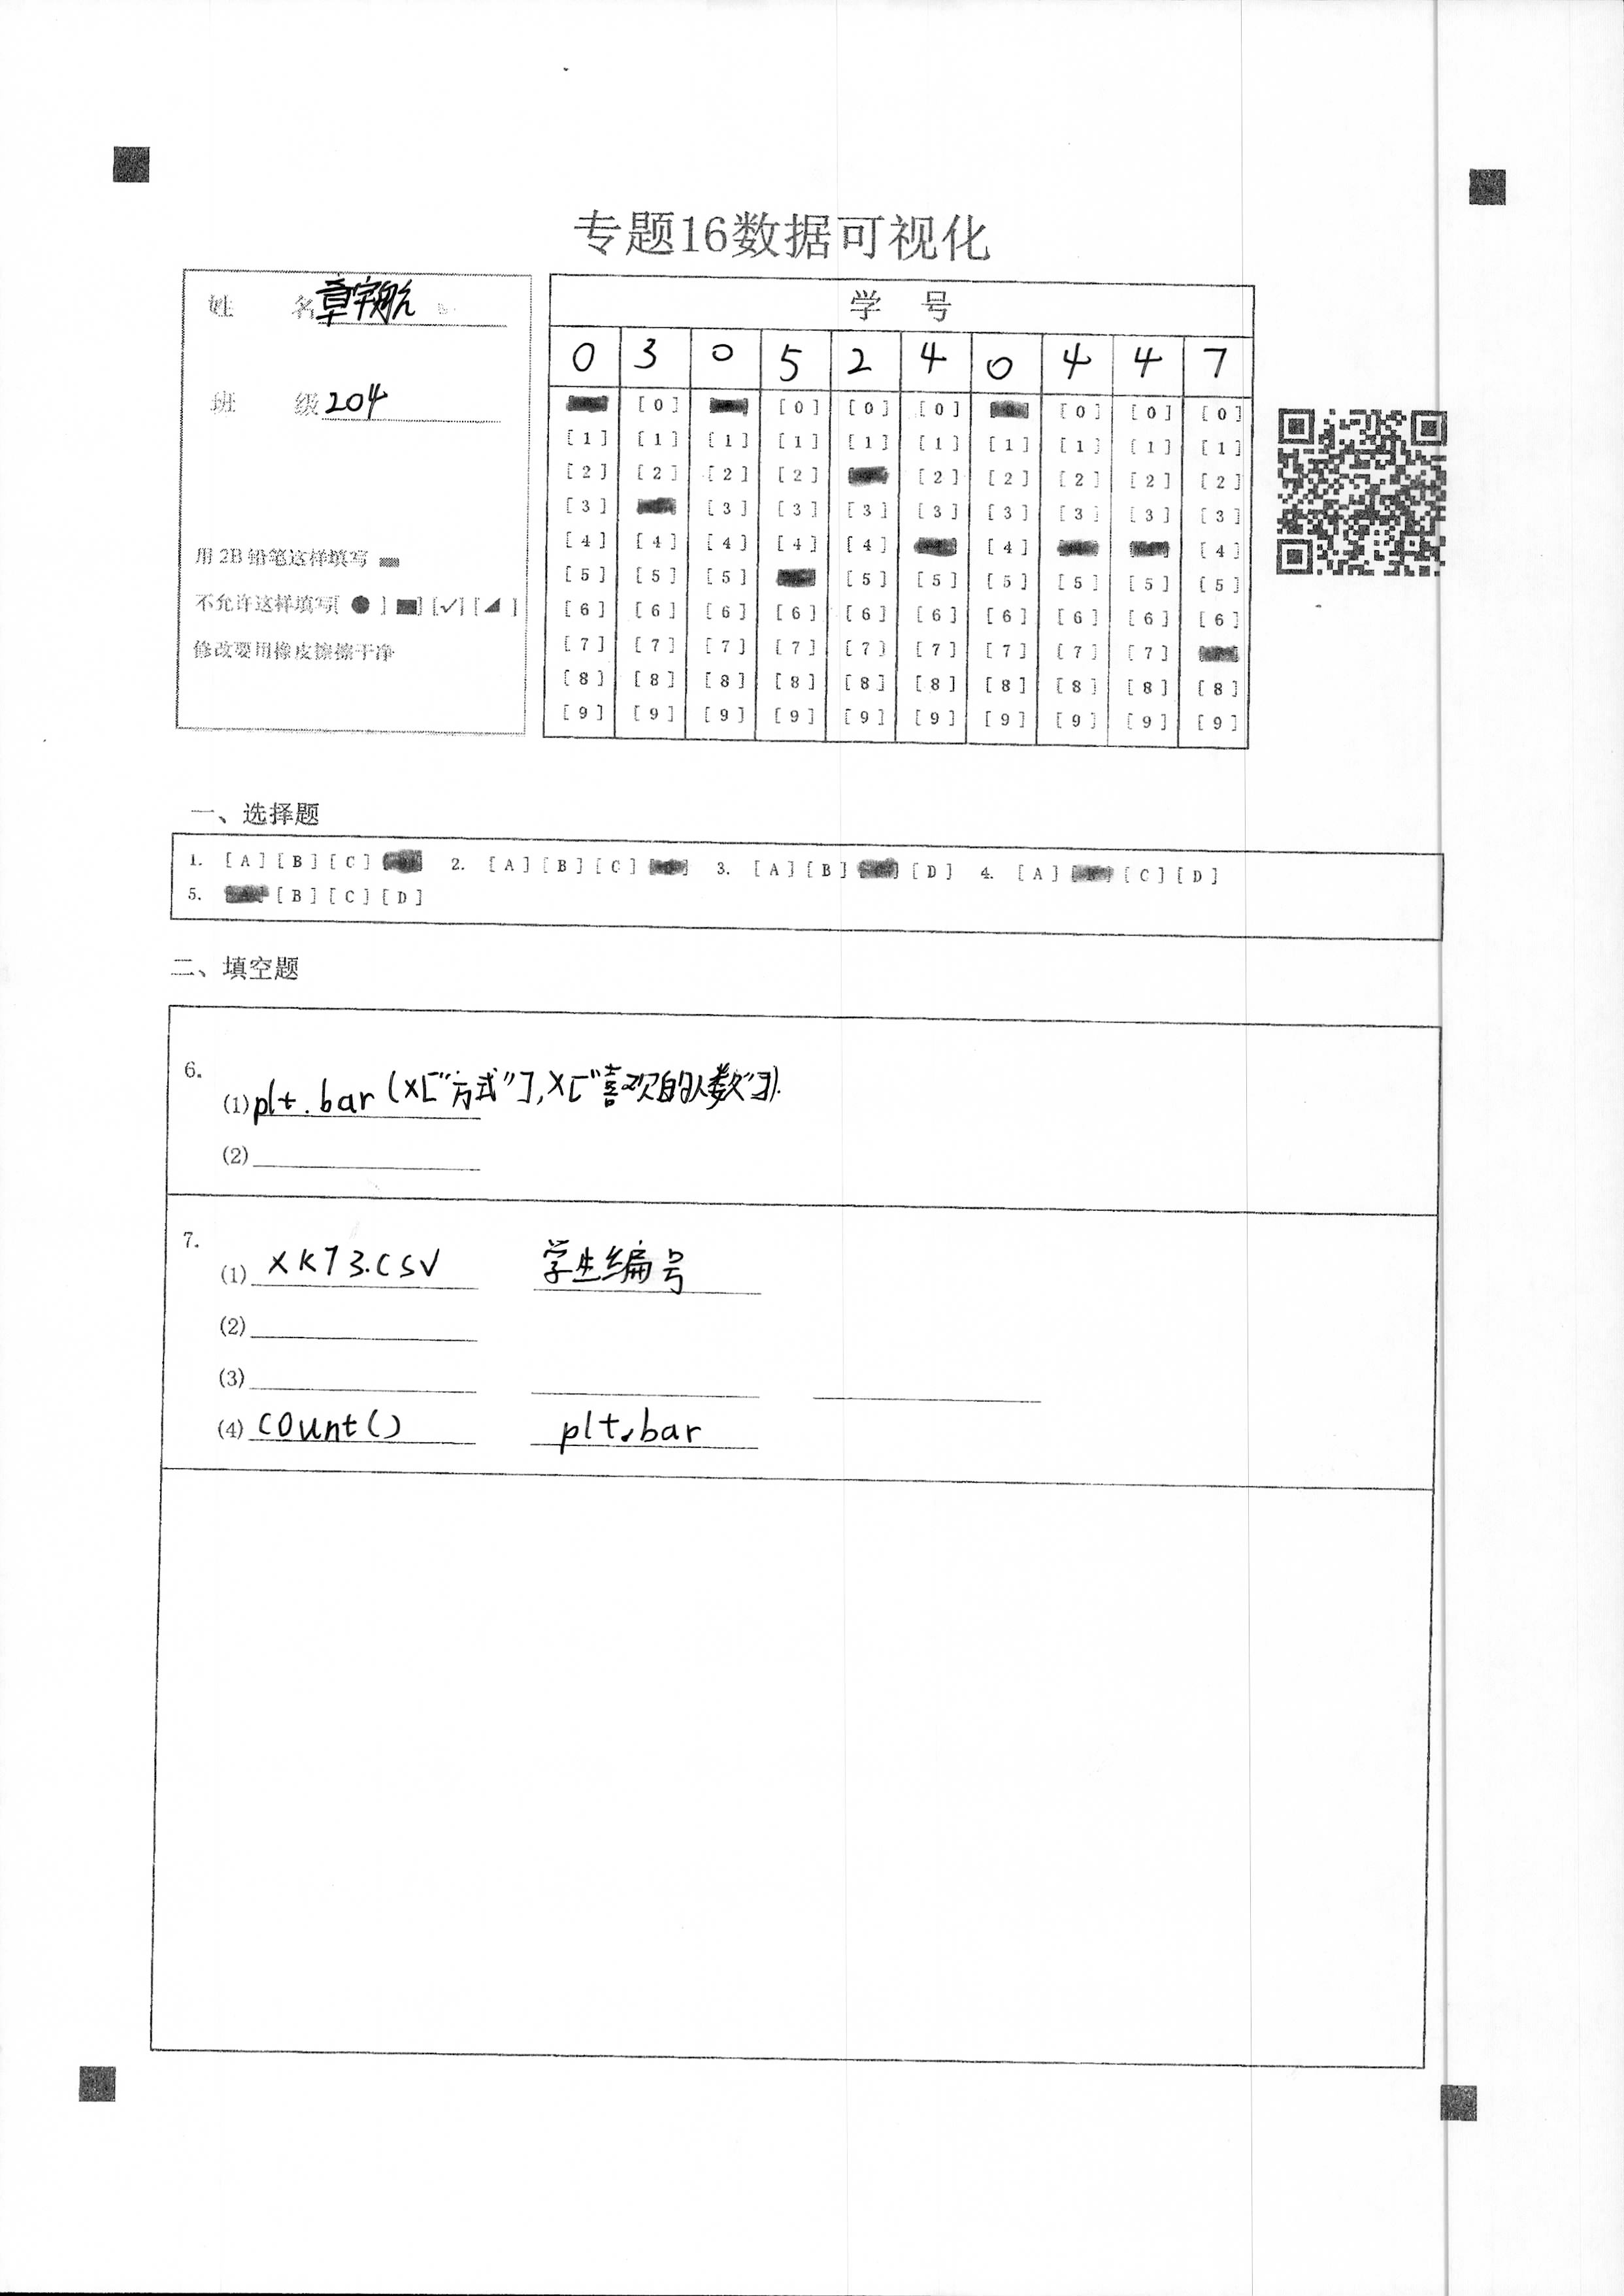 专题16数据可视化
姓 名 章宇航
班 级 204
用 2B 铅笔这样填写
不允许这样填写[ ● ] ■] [✓] [◢ ]
修改要用橡皮擦擦干净
学 号
0 3 0 5 2 4 0 4 4 7
[0] [0] [0] [0] [0] [0] [0]
[1] [1] [1] [1] [1] [1] [1] [1] [1] [1]
[2] [2] [2] [2] [2] [2] [2] [2] [2]
[3] [3] [3] [3] [3] [3] [3] [3] [3]
[4] [4] [4] [4] [4] [4] [4]
[5] [5] [5] [5] [5] [5] [5] [5] [5]
[6] [6] [6] [6] [6] [6] [6] [6] [6] [6]
[7] [7] [7] [7] [7] [7] [7] [7] [7]
[8] [8] [8] [8] [8] [8] [8] [8] [8] [8]
[9] [9] [9] [9] [9] [9] [9] [9] [9] [9]
一、选择题
1. [A] [B] [C] 2. [A] [B] [C] 3. [A] [B] [D] 4. [A] [C] [D]
5. [B] [C] [D]
二、填空题
6.
(1) plt.bar (x["方式"],x["喜欢的人数"]).
(2)
7.
(1) XK73.csv 学生编号
(2)
(3)
(4) count() plt.bar